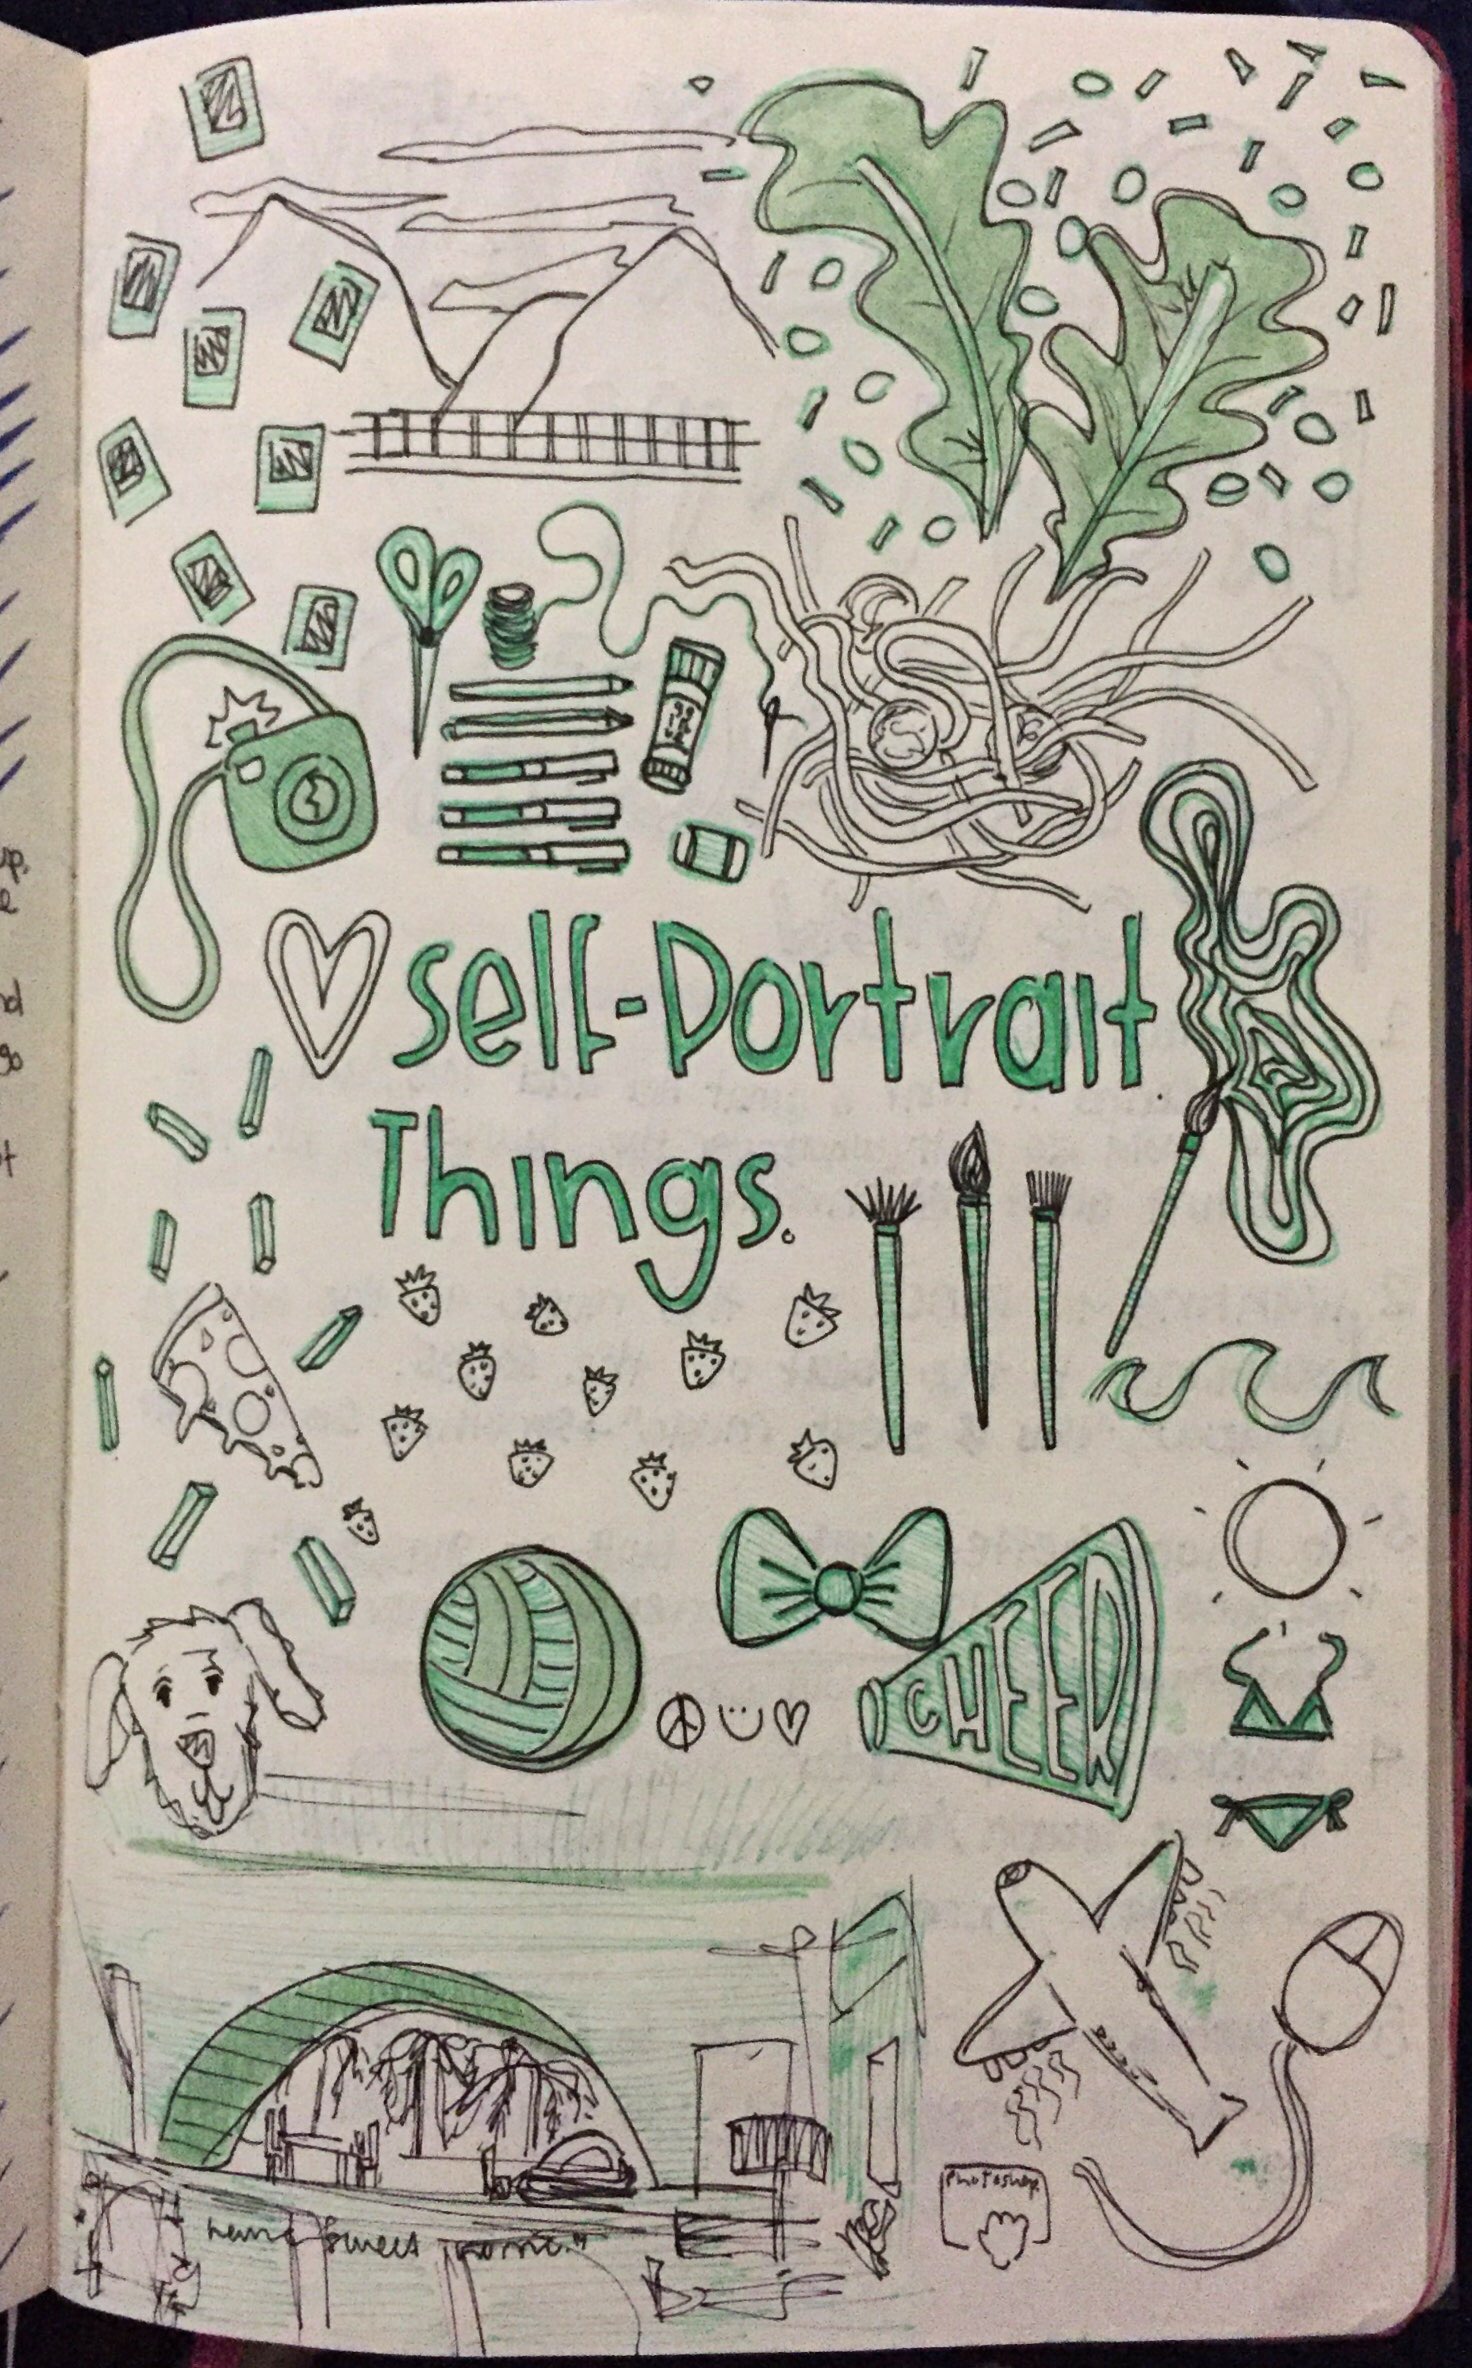 self-Portrait
Things.
CHEER
Photoshop
home sweet home."
up,